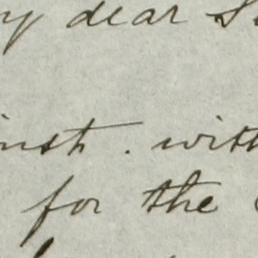 my dear S
inst. with
for the